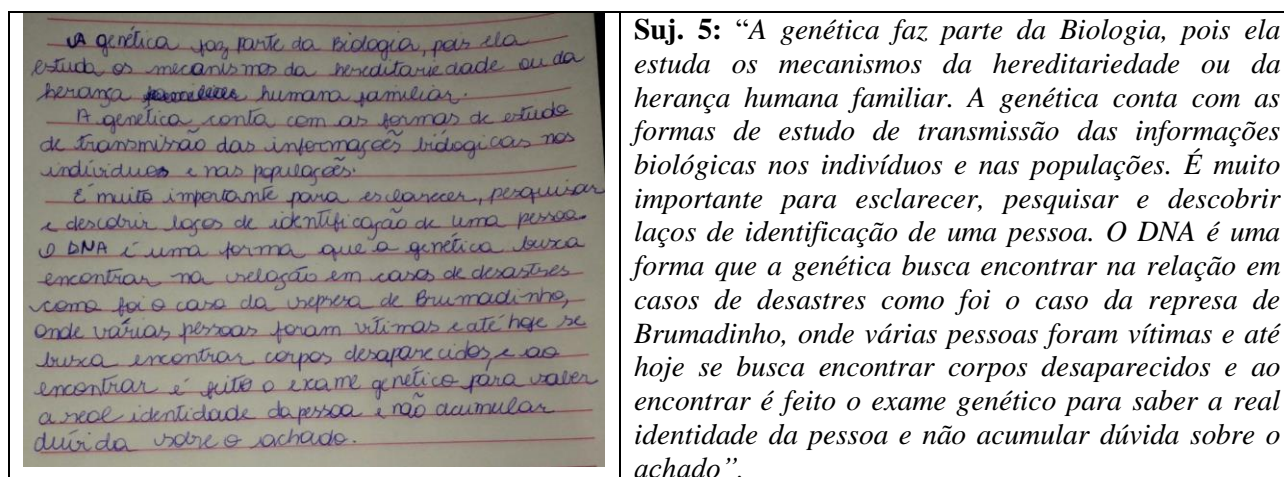 A genética faz parte da Biologia, pois ela
estuda os mecanismos da hereditariedade ou da
herança humana familiar.
A genética conta com as formas de estudo
de transmissão das informações biólogicas nos
indivíduos e nas populações.
É muito importante para esclarecer, pesquisar
e descobrir laços de identificação de uma pessoa.
O DNA é uma forma que a genética busca
encontrar na relação em casos de desastres
como foi o caso da represa de Brumadinho,
onde várias pessoas foram vítimas e até hoje se
busca encontrar corpos desaparecidos, e ao
encontrar é feito o exame genético para saber
a real identidade da pessoa e não acumular
dúvida sobre o achado.
Suj. 5: “A genética faz parte da Biologia, pois ela
estuda os mecanismos da hereditariedade ou da
herança humana familiar. A genética conta com as
formas de estudo de transmissão das informações
biológicas nos indivíduos e nas populações. É muito
importante para esclarecer, pesquisar e descobrir
laços de identificação de uma pessoa. O DNA é uma
forma que a genética busca encontrar na relação em
casos de desastres como foi o caso da represa de
Brumadinho, onde várias pessoas foram vítimas e até
hoje se busca encontrar corpos desaparecidos e ao
encontrar é feito o exame genético para saber a real
identidade da pessoa e não acumular dúvida sobre o
achado”.